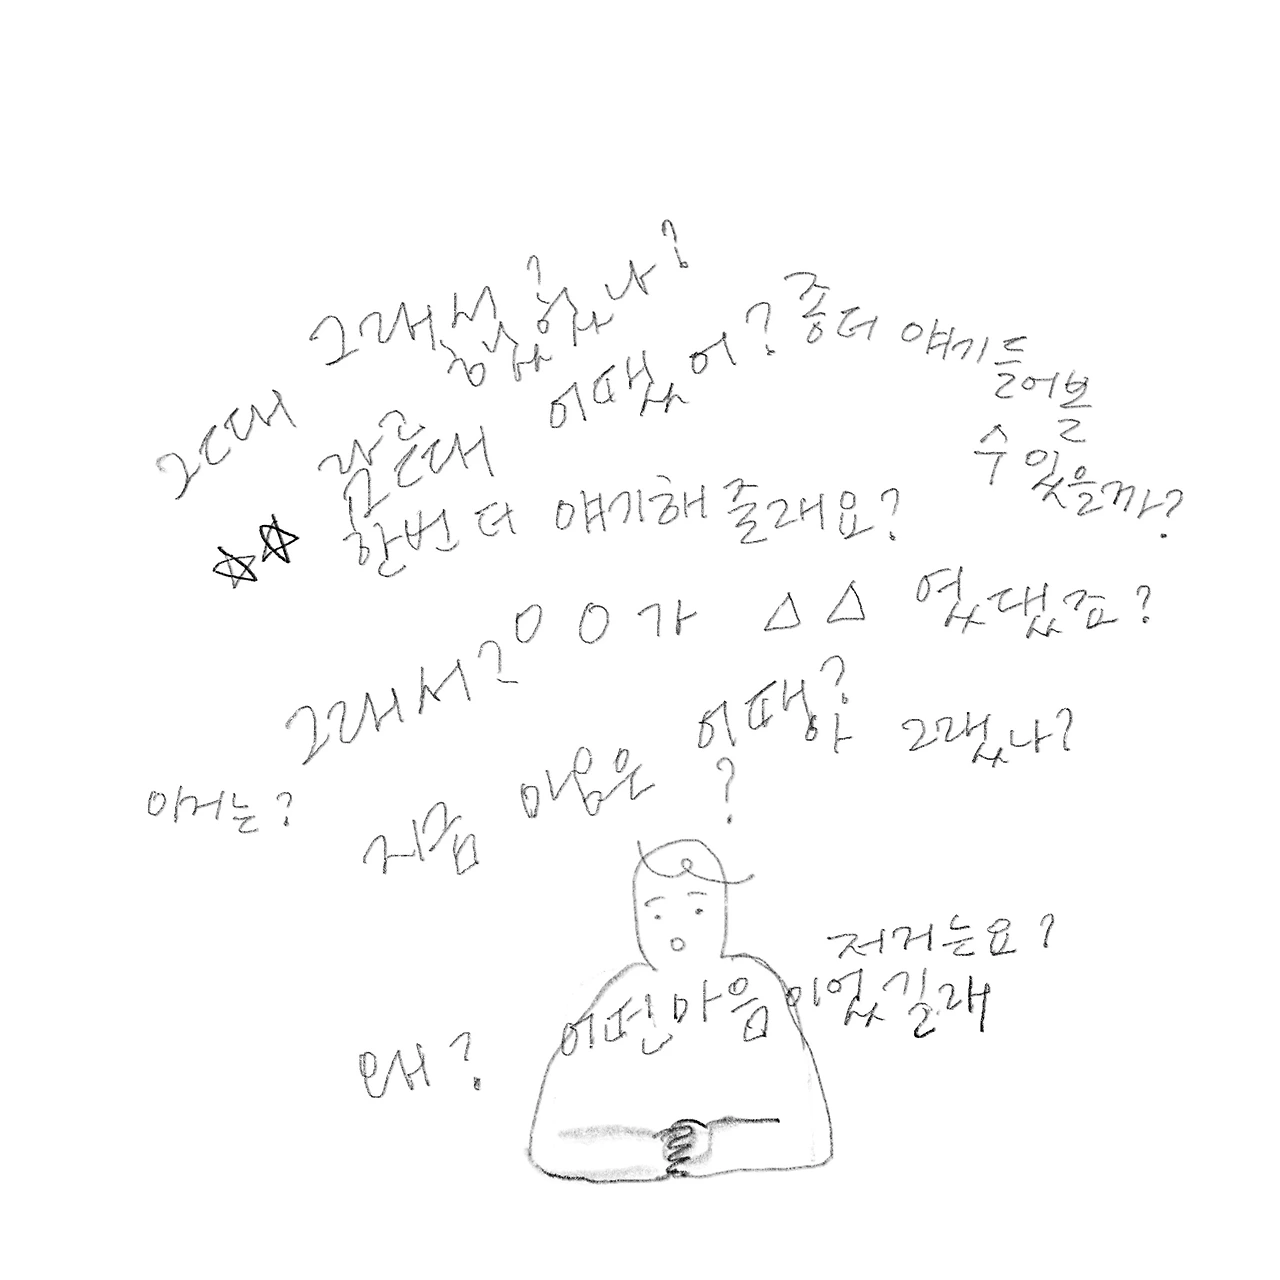 그래서
그랬나?
좀더 얘기 들어볼
수 있을까?
근데
어땠어?
근데
한번 더 얘기해 줄래요?
그래서? ㅇㅇ가 △△ 였댔죠?
이거는?
지금 마음은 어때?
그랬나?
?
저거는요?
왜?
어떤마음이었길래